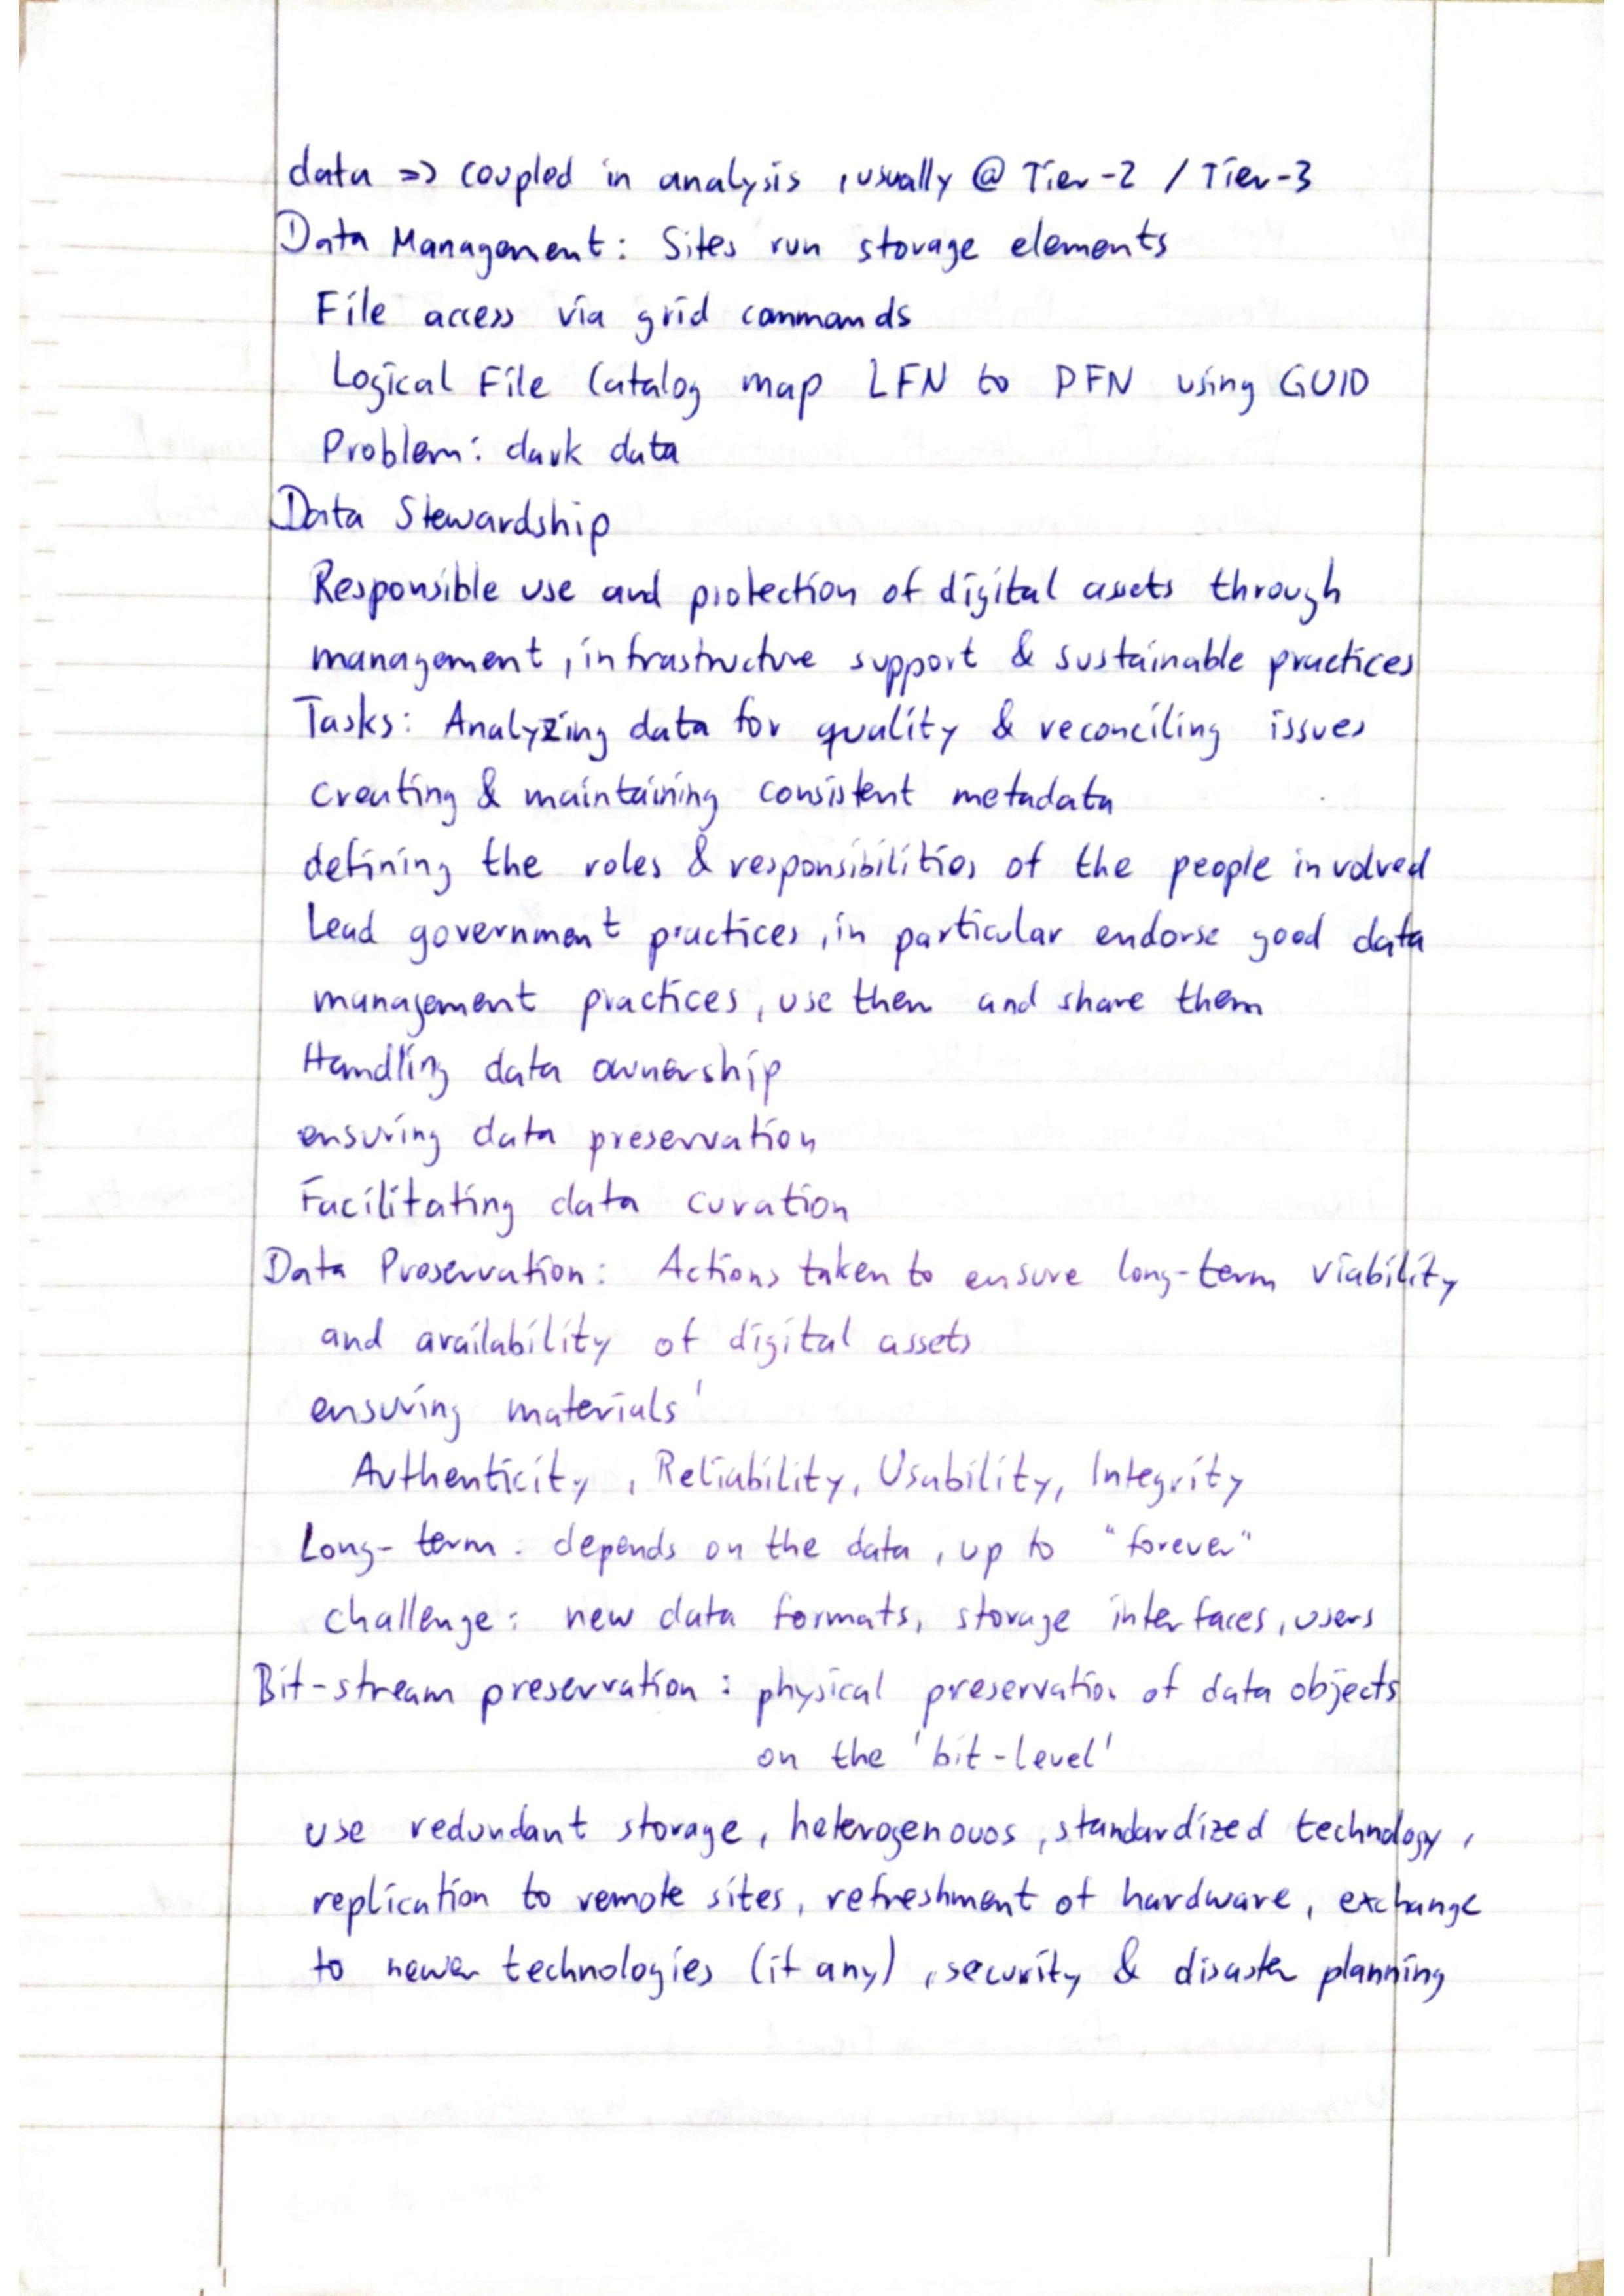 data => coupled in analysis , usually @ Tier-2 / Tier-3
Data Management: Sites run storage elements
File access via grid commands
Logical File Catalog map LFN to PFN using GUID
Problem: dark data
Data Stewardship
Responsible use and protection of digital assets through
management, infrastructure support & sustainable practices
Tasks: Analyzing data for quality & reconciling issues
creating & maintaining consistent metadata
defining the roles & responsibilities of the people involved
Lead government practices, in particular endorse good data
management practices, use them and share them
Handling data ownership
ensuring data preservation
Facilitating data curation
Data Preservation: Actions taken to ensure long-term viability
and availability of digital assets
ensuring materials'
Authenticity, Reliability, Usability, Integrity
Long-term: depends on the data, up to "forever"
challenge: new data formats, storage interfaces, users
Bit-stream preservation: physical preservation of data objects
on the 'bit-level'
use redundant storage, heterogenouos, standardized technology,
replication to remote sites, refreshment of hardware, exchange
to newer technologies (if any), security & disaster planning